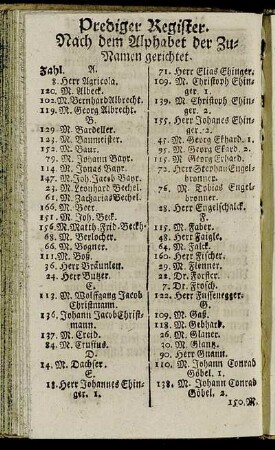 Prediger Register.
Nach dem Alphabet der Zu-
Namen gerichtet.
Zahl. A.
8. Herr Agricola.
120. M. Albeck.
102. M. Bernhard Albrecht.
119. M. Georg Albrecht.
B.
129 M. Bardeller.
123. M. Baumeister.
152 M. Baur.
79. M. Johann Bayr.
114. M. Jonas Bayr.
147. M. Joh. Jacob Bayr.
23. M. Leonhard Bechel.
61. M. Zacharias Bechel.
166. M. Beer.
151. M. Joh. Beck.
156. M. Matth. Frid. Beckh.
68. M. Berlocher.
66. M. Bogner.
111. M. Boß.
36. Herr Bräunlen.
24. Herr Butzer.
C.
113. M. Wolffgang Jacob
Christmann.
136. Johann Jacob Christ-
mann.
137. M. Creid.
84. M. Crusius.
D.
14. M. Dachser.
E.
18. Herr Johannes Ehin-
ger. 1.
71. Herr Elias Ehinger.
109. M. Christoph Ehin-
ger. 1.
139. M. Christoph Ehin-
ger. 2.
155. Herr Johannes Ehin-
ger. 2.
45. M. Georg Ekhard. 1.
95. M. Georg Ekard. 2.
115. M. Georg Erhard.
72. Herr Stephan Engel-
bronner.
76. M. Tobias Engel-
bronner.
28. Herr Engelschalck.
F.
115. M. Faber.
48. Herr Faigle.
64. M. Falck.
160. Herr Fischer.
29. M. Flenner.
22. Dr. Forster.
7. Dr. Frosch.
122. Herr Füssenegger.
G.
109. M. Gaß.
118. M. Gebhard.
26. M. Glaner.
30. M. Glantz.
90. Herr Gnann.
110. M. Johann Conrad
Göbel. 1.
138. M. Johann Conrad
Göbel. 2.
150. M.